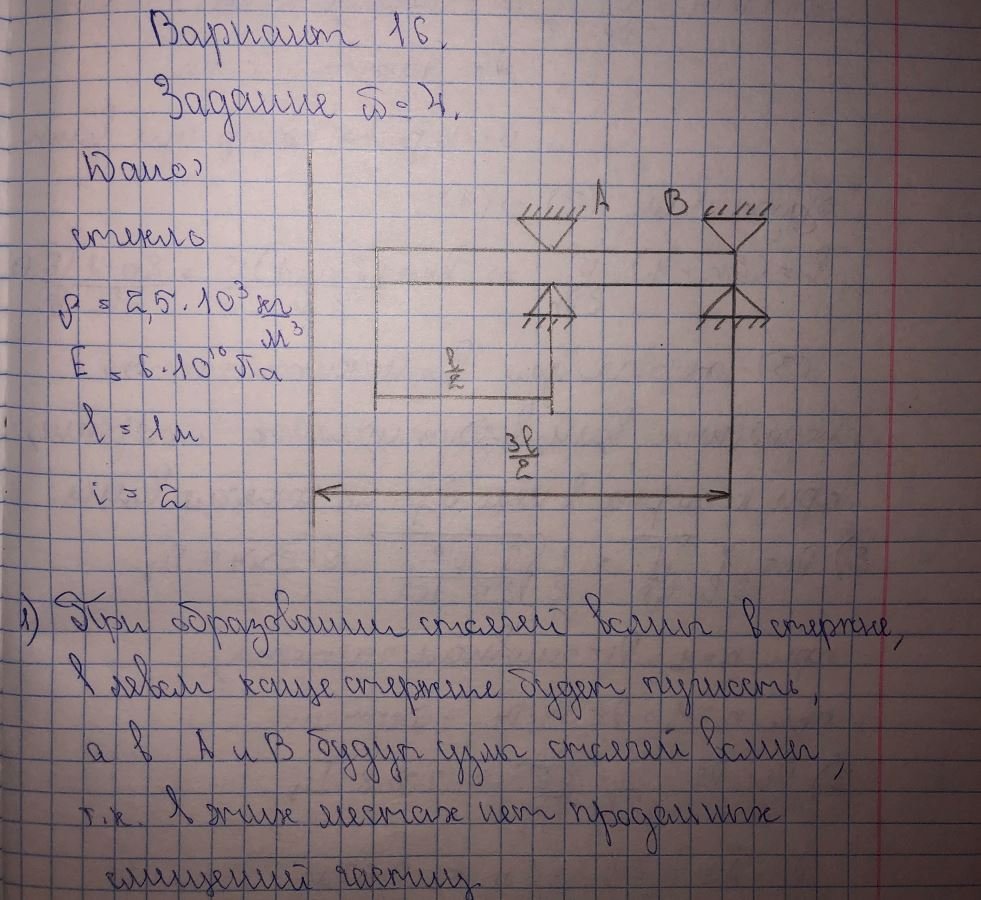 Вариант 16.
Задание п=4.
Дано:
A B
стекло
ρ = 2,5·10³ кг/м³
E = 6·10¹⁰ Па
l/2
l = 1 м
3l/2
i = 2
1) При образовании стоячей волны в стержне,
в левом конце стержня будет пучность,
а в A и B будут узлы стоячей волны,
т.к. в этих местах нет продольных
смещений частиц